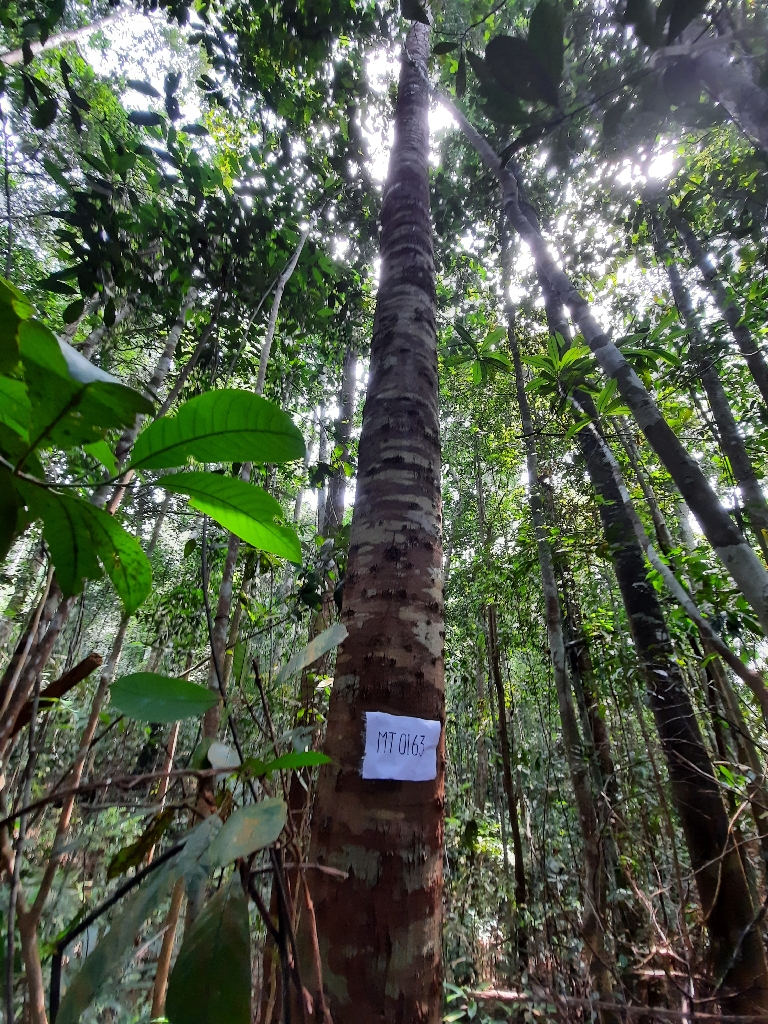 MT 0163